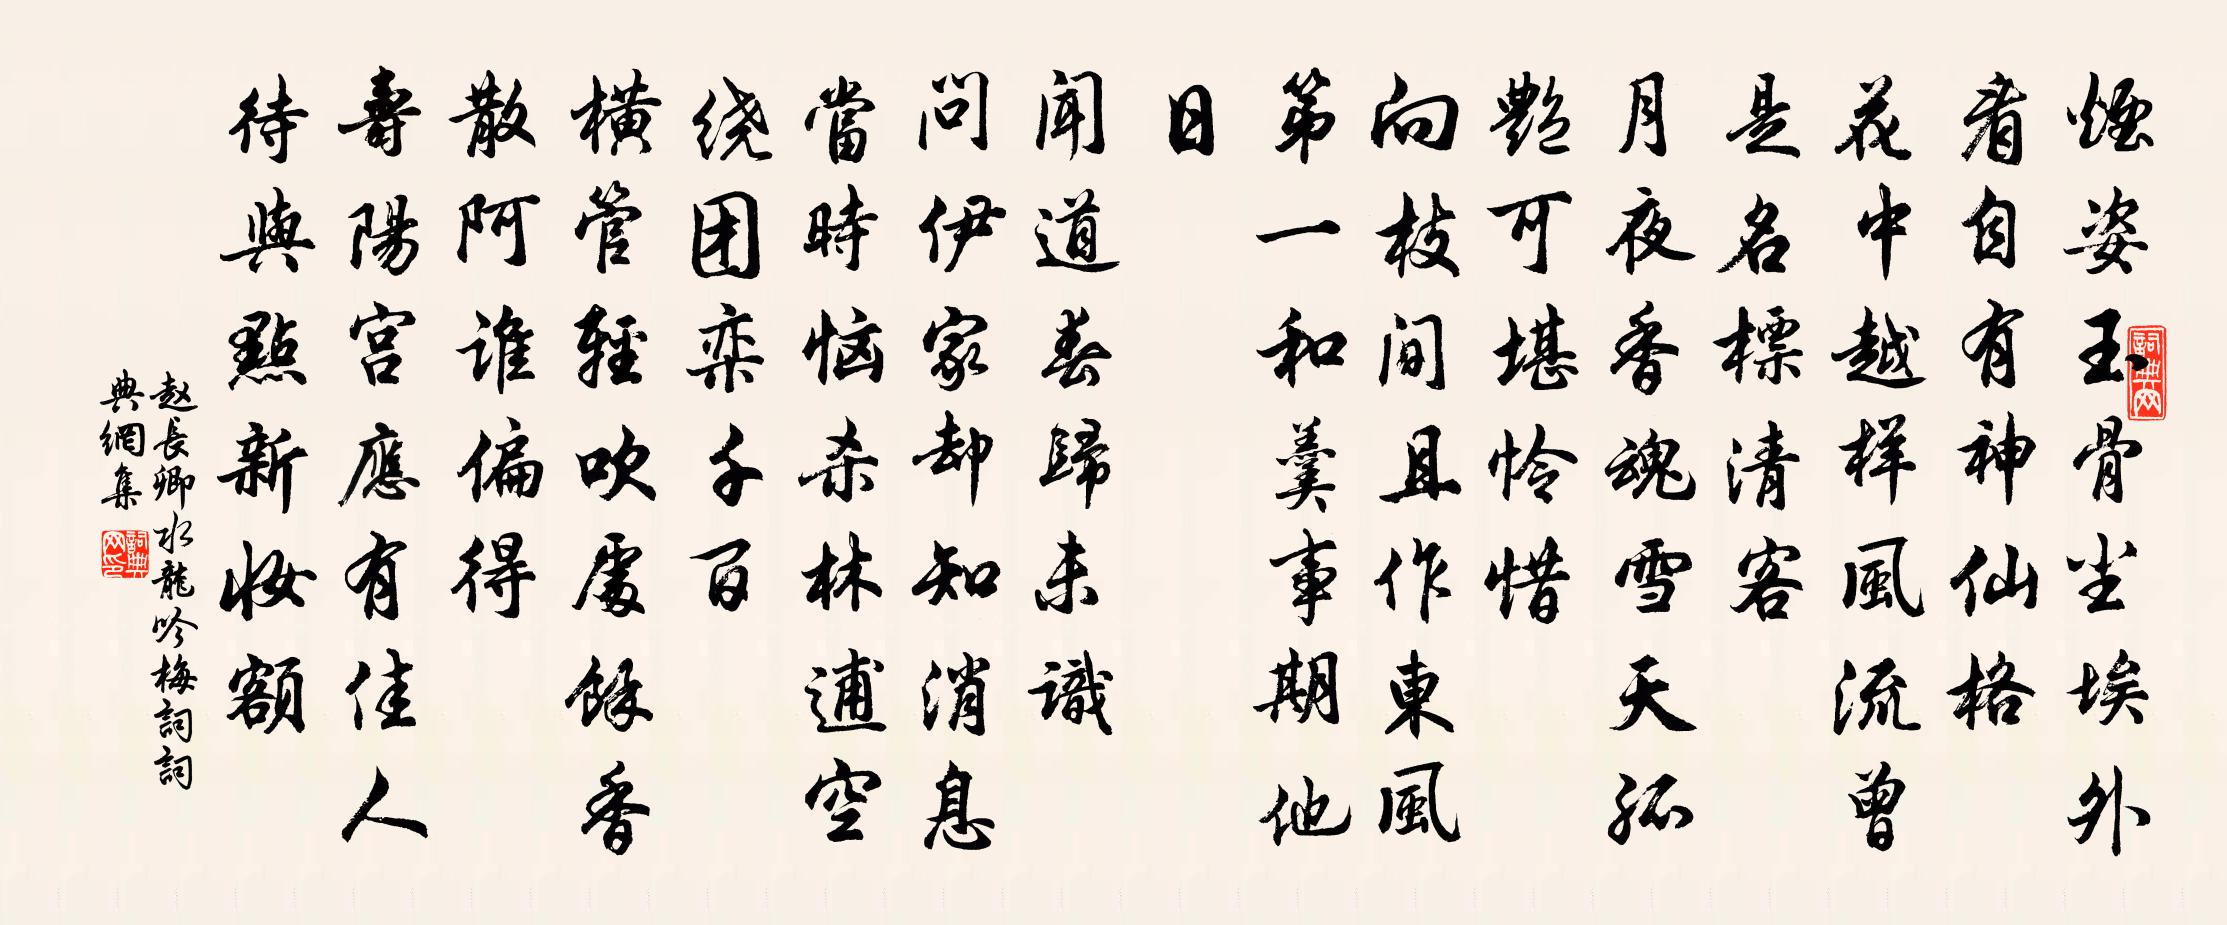 煙姿玉骨尘埃外
看自有神仙格
花中越样風流曾
是名標清客
月夜香魂雪天孤
艷可堪怜惜
向枝间且作東風
第一和羹事期他
日
闻道春歸未識
问伊家却知消息
當時恼杀林逋空
绕团栾千百
横管輕吹處餘香
散阿谁偏得
壽陽宫應有佳人
待與點新妝額
赵長卿水龍吟梅詞詞
典網集
詞典网
詞典网印